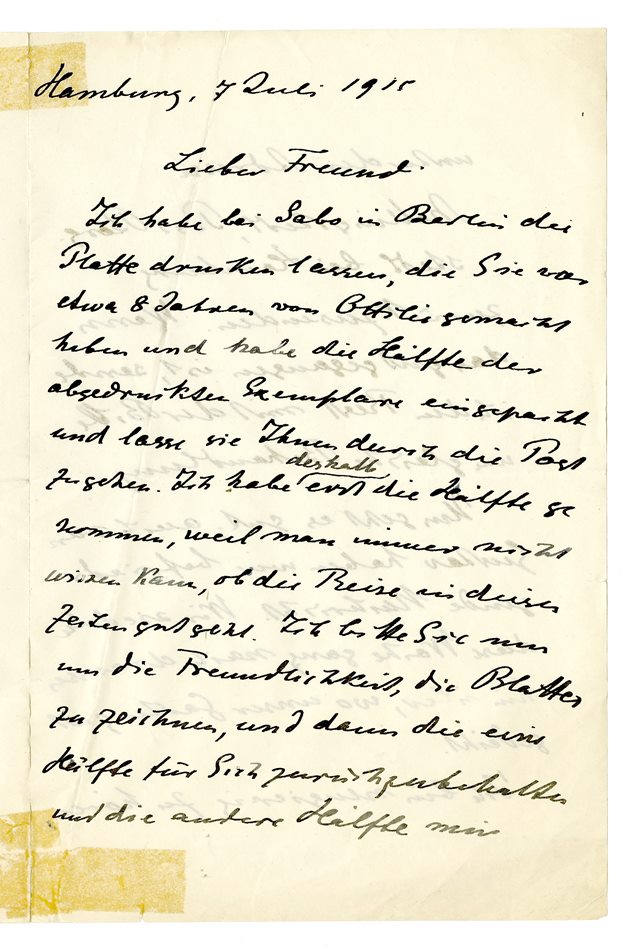 Hamburg, 7 Juli 1915
Lieber Freund.
Ich habe bei Sabo in Berlin die
Platte drucken lassen, die Sie vor
etwa 8 Jahren von Ottilie gemacht
haben und habe die Hälfte der
abgedruckten Exemplare eingepackt
und lasse sie Ihnen durch die Post
zugehen. Ich habe deshalb erst die Hälfte ge
nommen, weil man immer nicht
wissen kann, ob die Reise in diesen
Zeiten gut geht. Ich bitte Sie nun
um die Freundlichkeit, die Blätter
zu zeichnen, und dann die eine
Hälfte für Sich zurückzubehalten
und die andere Hälfte mir